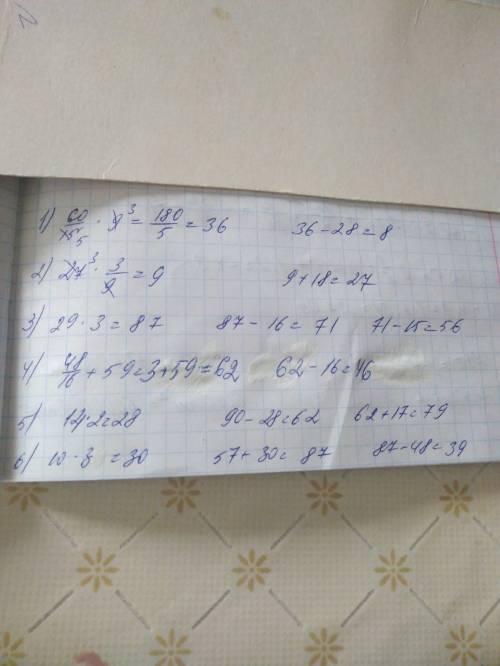 1) 60/15 5 · 9 3 = 180/5 = 36 36 - 28 = 8
2) 27 3 · 3/9 = 9 9 + 18 = 27
3) 29 · 3 = 87 87 - 16 = 71 71 - 15 = 56
4) 48/16 + 59 = 3 + 59 = 62 62 - 16 = 46
5) 14 · 2 = 28 90 - 28 = 62 62 + 17 = 79
6) 10 · 3 = 30 57 + 30 = 87 87 - 48 = 39